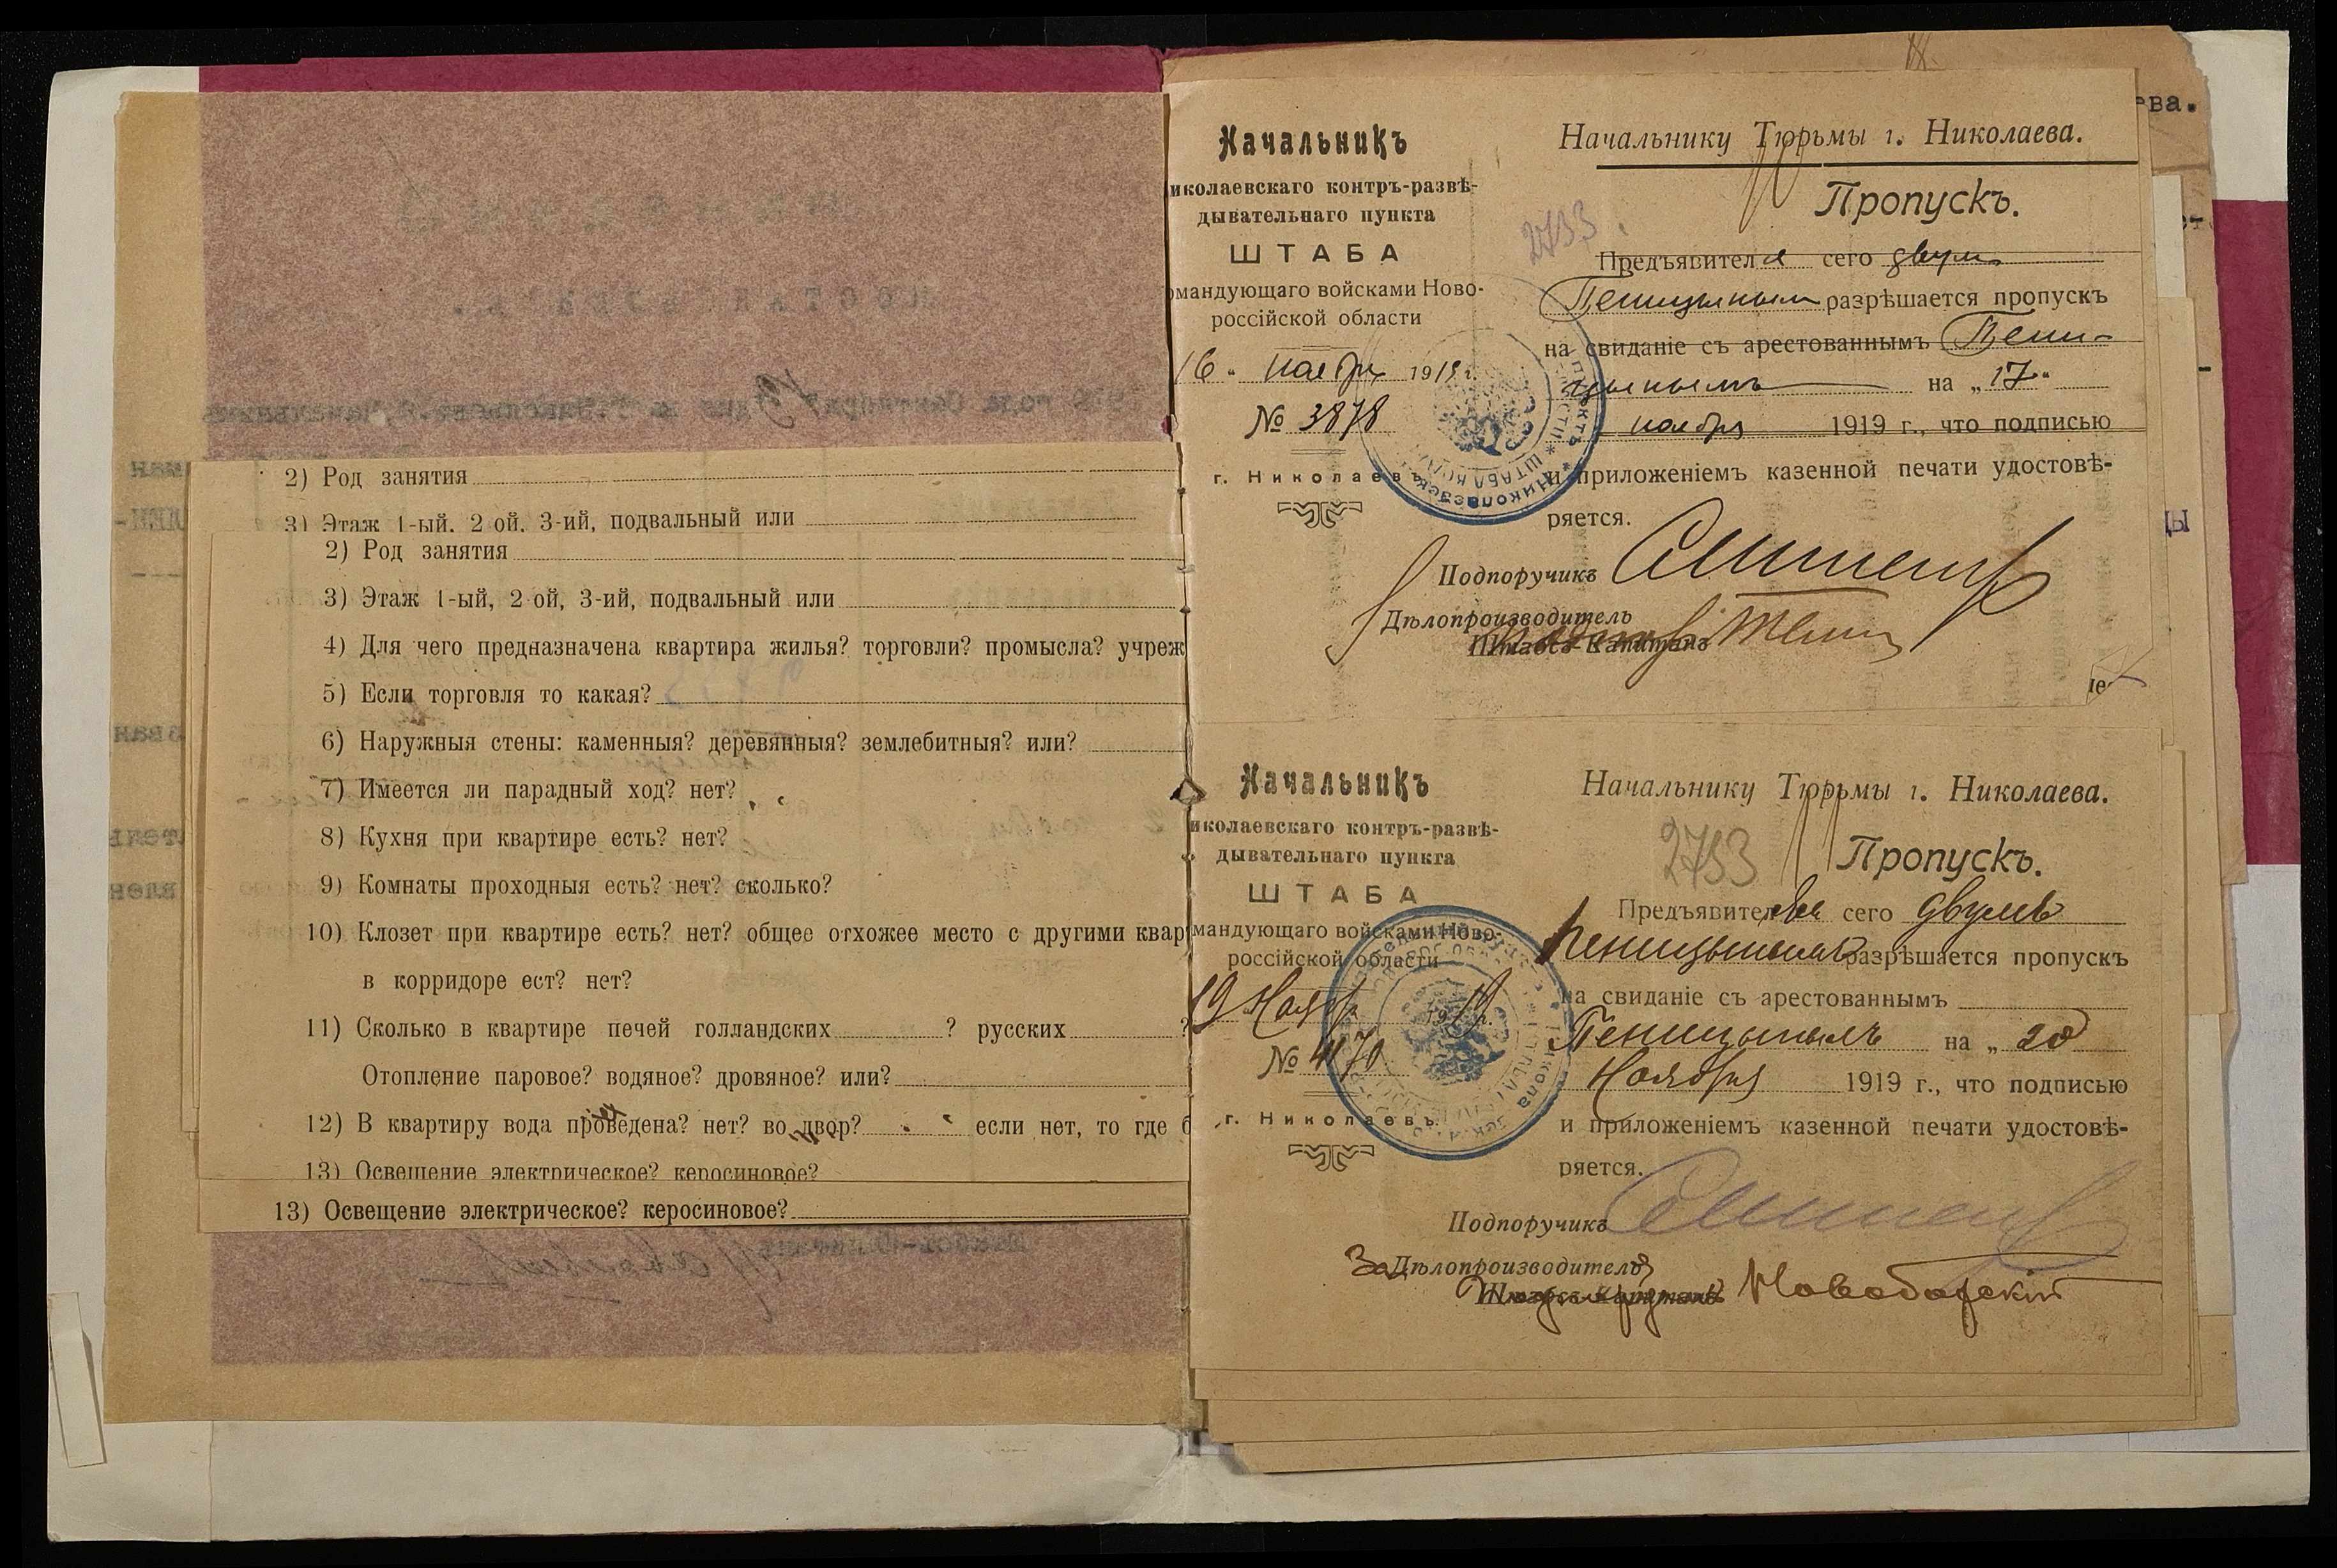 2) Род занятия
3) Этаж 1-ый, 2 ой, 3-ий, подвальный или
2) Род занятия
3) Этаж 1-ый, 2 ой, 3-ий, подвальный или
4) Для чего предназначена квартира жилья? торговли? промысла? учреж
5) Если торговля то какая?
6) Наружныя стены: каменныя? деревянныя? землебитныя? или?
7) Имеется ли парадный ход? нет?
8) Кухня при квартире есть? нет?
9) Комнаты проходныя есть? нет? сколько?
10) Клозет при квартире есть? нет? общее отхожее место с другими квар
в корридоре ест? нет?
11) Сколько в квартире печей голландских ? русских ?
Отопление паровое? водяное? дровяное? или?
12) В квартиру вода проведена? нет? во двор? если нет, то где б
13) Освещение электрическое? керосиновое?
13) Освещение электрическое? керосиновое?
Начальникъ
иколаевскаго контръ-развѣ-
дывательнаго пункта
ШТАБА
омандующаго войсками Ново-
россійской области
16 " ноября 1919 г.
№ 3878
г. Николаевъ
Начальнику Тюрьмы г. Николаева.
2733
Пропускъ.
Предъявителя сего двум
Пеницыным разрѣшается пропускъ
на свиданіе съ арестованнымъ Пени-
цынымъ на „17"
ноября 1919 г., что подписью
и приложеніемъ казенной печати удостовѣ-
ряется.
Подпоручикъ
Дѣлопроизводитель
Штабсъ-Капитанъ
Начальникъ
иколаевскаго контръ-развѣ-
дывательнаго пункта
ШТАБА
мандующаго войсками Ново-
россійской области
19 Ноябр 1919 г.
№ 4170
г. Николаевъ
Начальнику Тюрьмы г. Николаева.
2733
Пропускъ.
Предъявителя сего двумъ
Пеницынымъ разрѣшается пропускъ
на свиданіе съ арестованнымъ
Пеницынымъ на „20
Ноября 1919 г., что подписью
и приложеніемъ казенной печати удостовѣ-
ряется.
Подпоручикъ
За Дѣлопроизводителя
Штабсъ-Капитанъ Новоборскій
ева.
цы